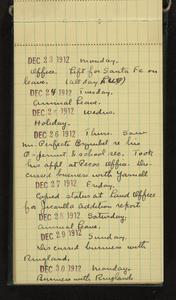 DEC 23 1912 Monday.
Office. Left for Santa Fe on
leave. (all day
DEC 24 1912 Tuesday,
Annual leave.
DEC 25 1912 Wednes.
Holiday.
DEC 26 1912 Thurs. Saw
Mr. re his
school sec. Took
his appl at Pecos office. Dis
cussed business with
DEC 27 1912 Friday,
Copied status at Land Office
for Jicarilla addition report
DEC 28 1912 Saturday,
Annual leave.
DEC 29 1912 Sunday,
Discussed business with
Ringland.
DEC 30 1912 Monday.
Business with Ringland